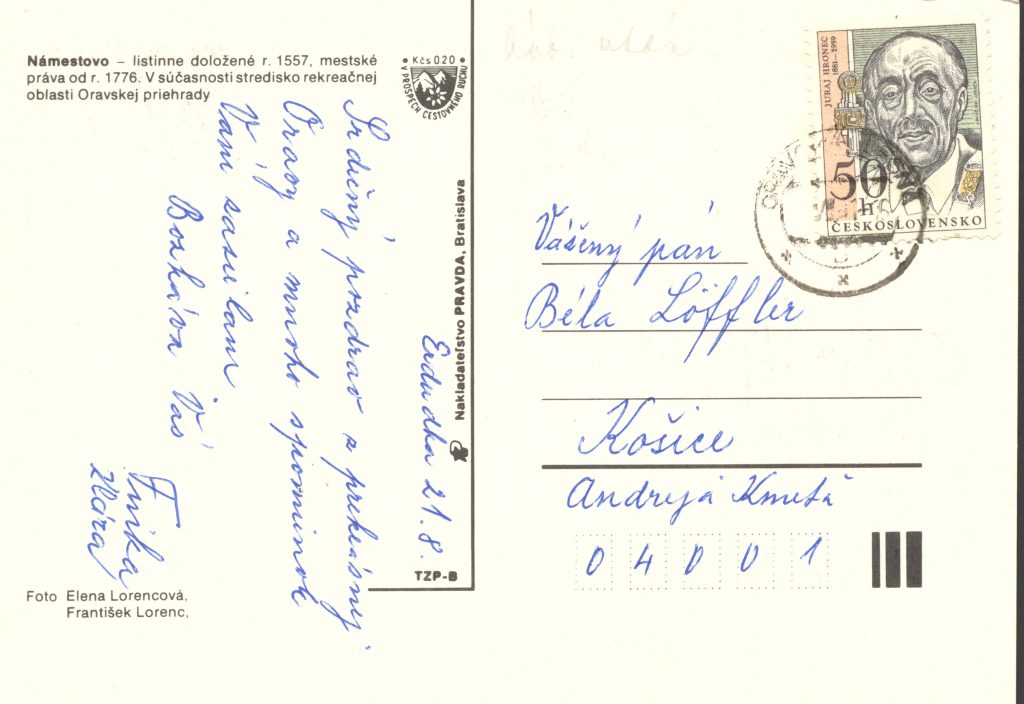 Námestovo – listinne doložené r. 1557, mestské
práva od r. 1776. V súčasnosti stredisko rekreačnej
oblasti Oravskej priehrady
Kčs 0.20
V PROSPECH CESTOVNÉHO RUCHU
Srdečný pozdrav z prekrásnej
Oravy a mnoho spomienok
Vám zasielam
Bozkáva Vás
Erdudka 21.8.
Nakladateľstvo PRAVDA, Bratislava
TZP-B
Foto Elena Lorencová,
František Lorenc,
JURAJ HRONEC
1881-1959
50
h
ČESKOSLOVENSKO
Vážený pán
Béla Löffler
Košice
Andreja Kmeťa
04001